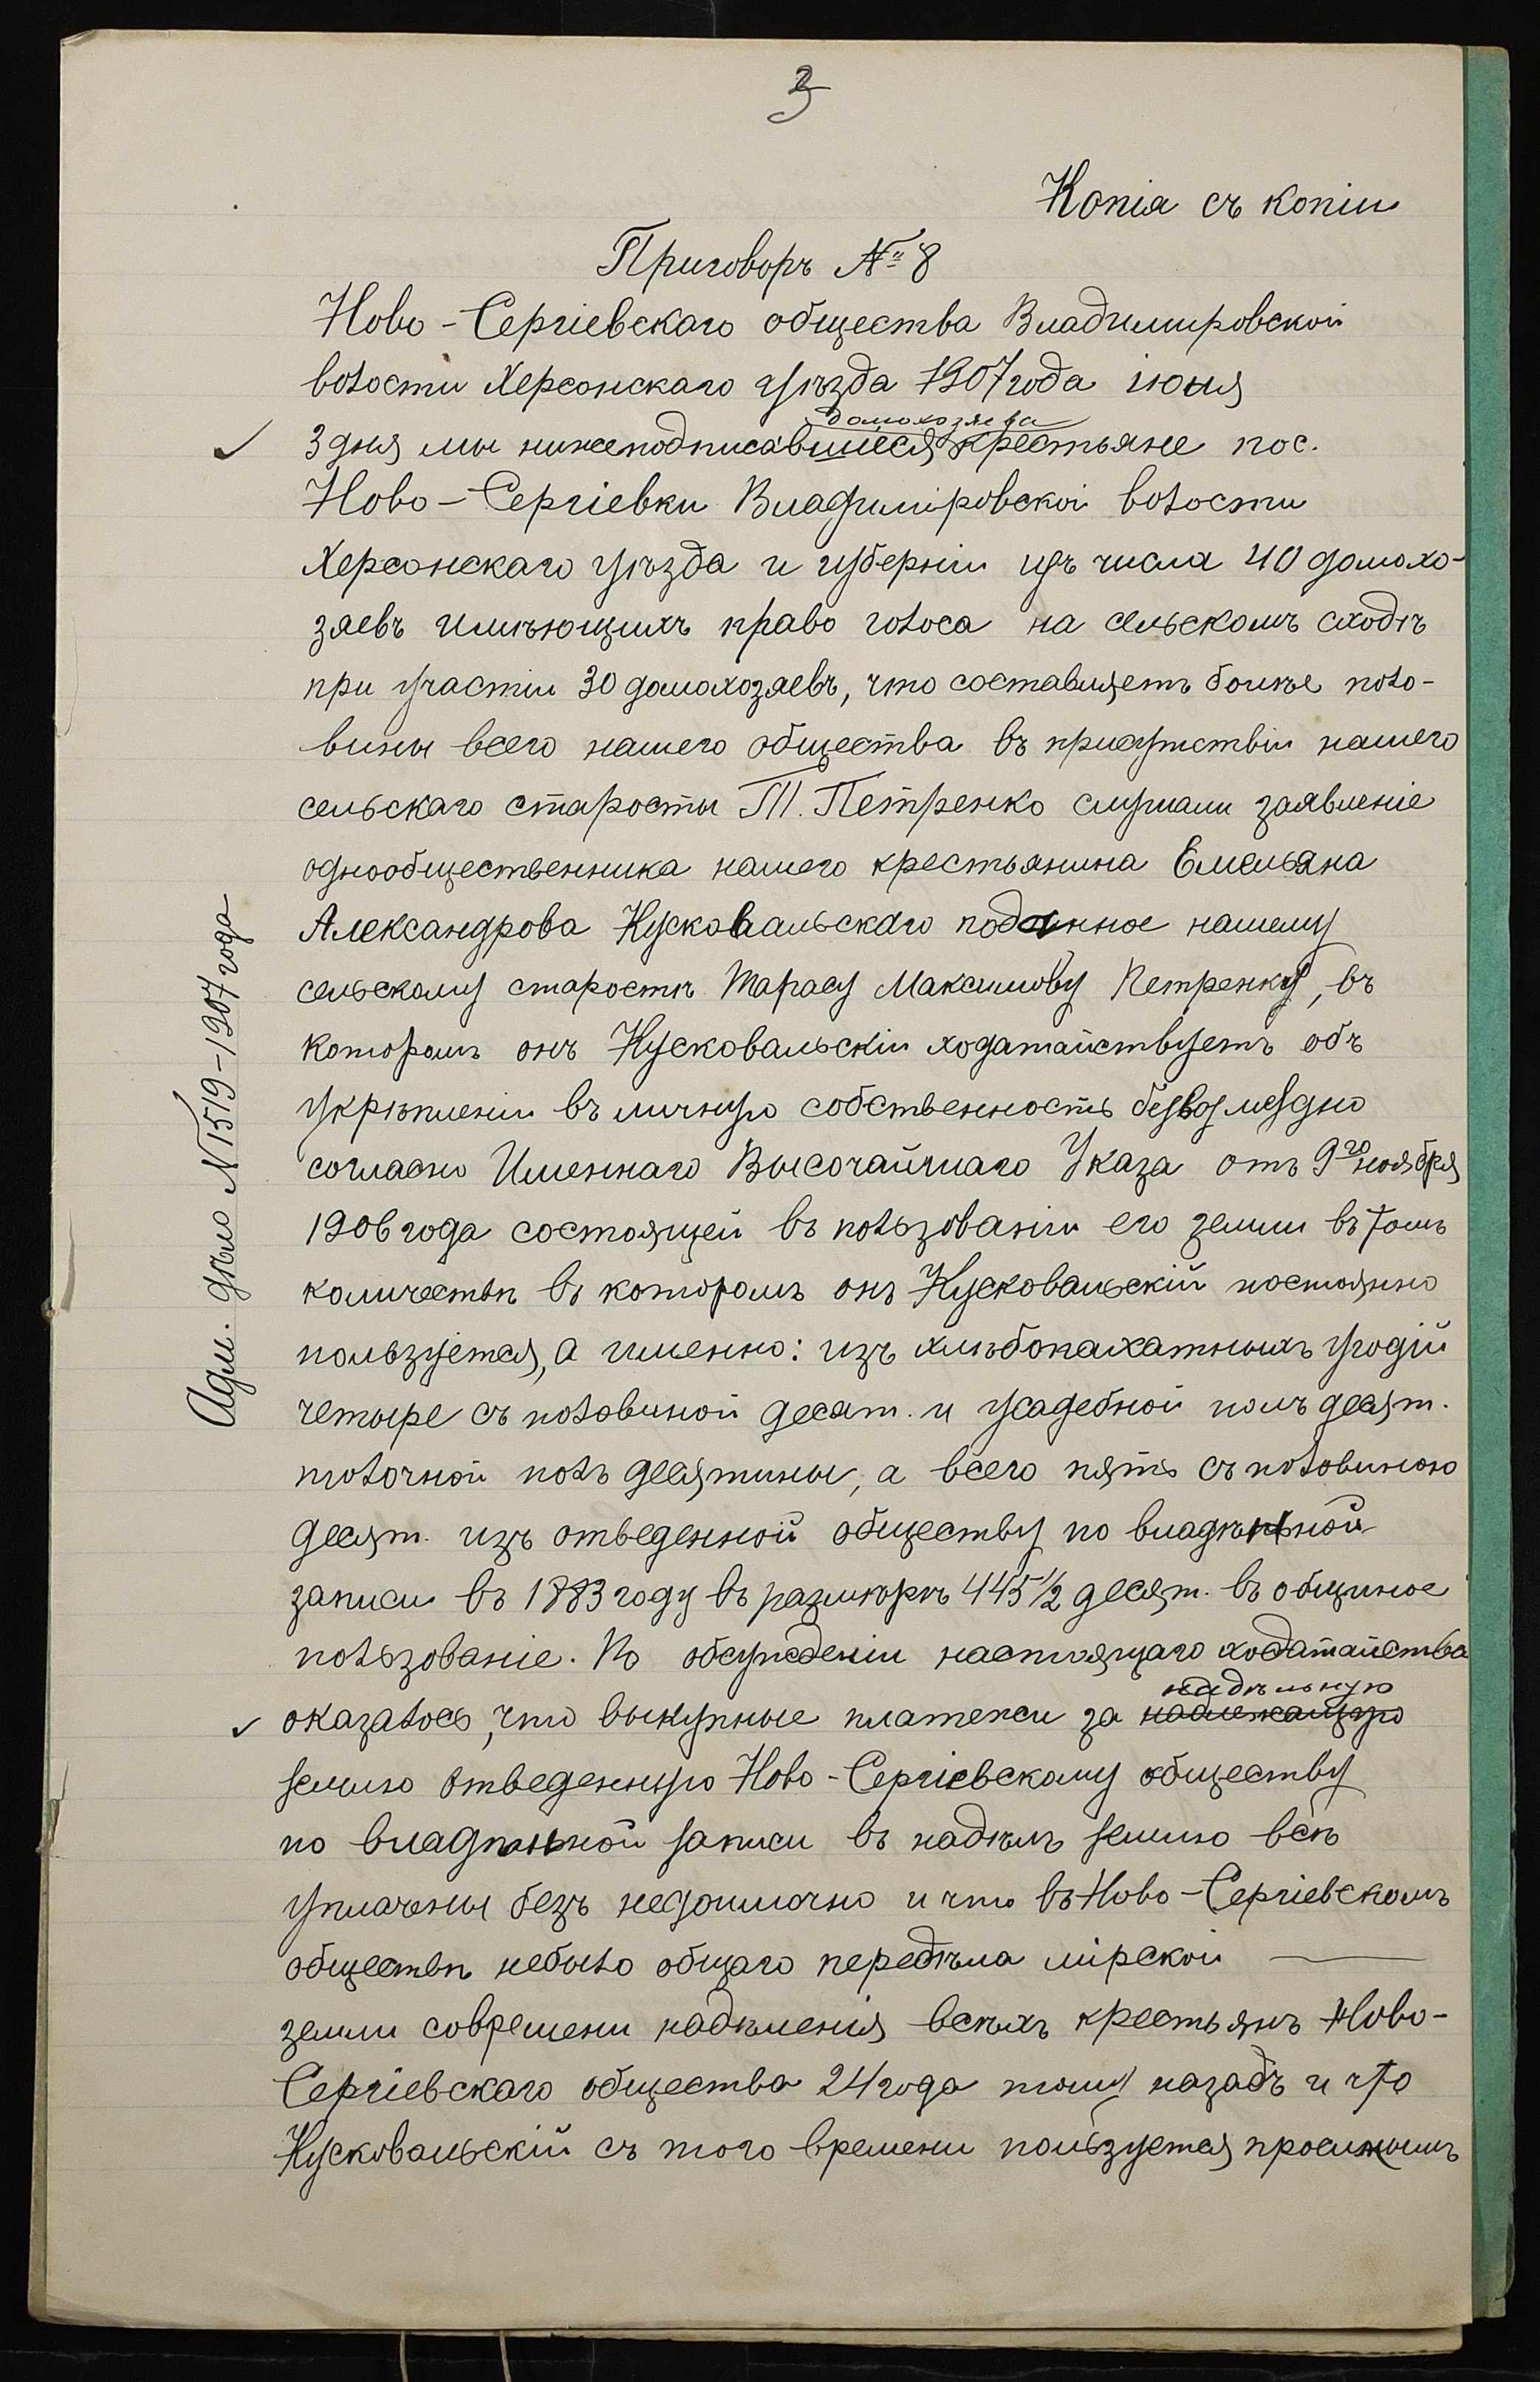 3
Копія съ копіи
Приговоръ № 8
Ново-Сергіевскаго общества Владимировской
волости Херсонскаго уѣзда 1907 года іюня
домохозяева
3 дня мы нижеподписавшіеся крестьяне пос.
Ново-Сергіевки Владиміровской волости
Херсонскаго уѣзда и губерніи изъ числа 40 домохо-
зяевъ имѣющихъ право голоса на сельскомъ сходѣ
при участіи 30 домохозяевъ, что составляетъ болѣе поло-
вины всего нашего общества въ присутствіи нашего
сельскаго старосты Т. Петренко слушали заявленіе
однообщественника нашего крестьянина Емельяна
Александрова Кусковальскаго поданное нашему
сельскому старостѣ Тарасу Максимову Петренку, въ
которомъ онъ Кусковальскій ходатайствуетъ объ
укрѣпленіи въ личную собственность безвозмездно
согласно Именнаго Высочайшаго Указа отъ 9го ноября
1906 года состоящей въ пользованіи его земли въ томъ
количествѣ въ которомъ онъ Кусковальскій постоянно
пользуется, а именно: изъ хлѣбопахатныхъ угодій
четыре съ половиной десят. и усадебной полъ десят.
толочной полъ десятины, а всего пять съ половиною
десят. изъ отведенной обществу по владѣнной
записи въ 1883 году въ размѣрѣ 445 1/2 десят. въ общинное
пользованіе. По обсужденіи настоящаго ходатайства
надѣльную
оказалось, что выкупные платежи за надлежащую
землю отведенную Ново-Сергіевскому обществу
по владѣнной записи въ надѣлъ землю всѣ
уплачены безъ недоимочно и что въ Ново-Сергіевскомъ
обществѣ небыло общаго передѣла мірской
земли современи надѣленія всѣхъ крестьянъ Ново-
Сергіевскаго общества 24 года тому назадъ и что
Кусковальскій съ того времени пользуется просимымъ
Адм. дѣло № 1519-1907 года